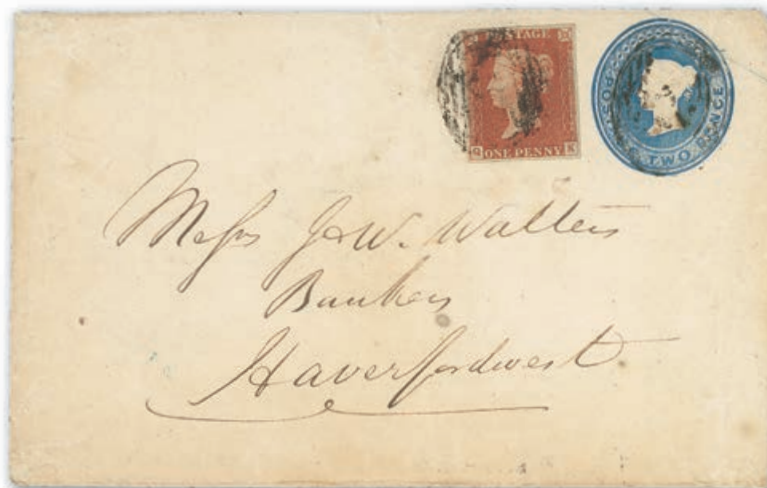 POSTAGE
ONE PENNY
K
POSTAGE TWO PENCE
Messrs J & W. Walters
Bankers
Haverfordwest